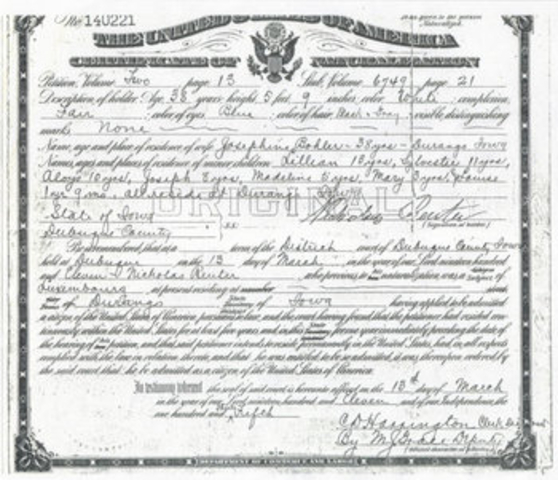 No. 140221
TO BE GIVEN TO THE PERSON Naturalized.
THE UNITED STATES OF AMERICA
CERTIFICATE OF NATURALIZATION
Petition, Volume Two page 13 Stub, Volume 6749 page 21
Description of holder: Age, 38 years; height, 5 feet 9 inches; color, White; complexion,
Fair; color of eyes, Blue; color of hair, Black & Gray; visible distinguishing
marks, None
Name, age and place of residence of wife, Josephine Bohler - 38 yrs - Durango Iowa
Names, ages and places of residence of minor children, Lillian 13 yrs, Sylvester 11 yrs,
Aloys 10 yrs, Joseph 8 yrs, Madeline 5 yrs, Mary 3 yrs,
1 yr 9 mo, all reside at Durango Iowa
ORIGINAL
State of Iowa
Dubuque County ss:
(Signature of holder)
Be it remembered, that at a term of the District court of Dubuque County Iowa
held at Dubuque on the 13 day of March in the year of our Lord nineteen hundred
and Eleven Nicholas Reuter who previous to his naturalization was a subject of
Luxembourg at present residing at number street
of Durango Iowa having applied to be admitted
a citizen of the United States of America pursuant to law, and the court having found that the petitioner had resided con-
tinuously within the United States for at least five years and in this for one year immediately preceding the date of
the hearing of his petition, and that said petitioner intends to reside permanently in the United States, had in all respects
complied with the law in relation thereto, and that he was entitled to be so admitted, it was thereupon ordered by
the said court that he be admitted as a citizen of the United States of America.
In testimony whereof the seal of said court is hereunto affixed on the 13th day of March
in the year of our Lord nineteen hundred and Eleven and of our Independence the
one hundred and
C D Harrington Clerk
By M J Deputy
DEPARTMENT OF COMMERCE AND LABOR